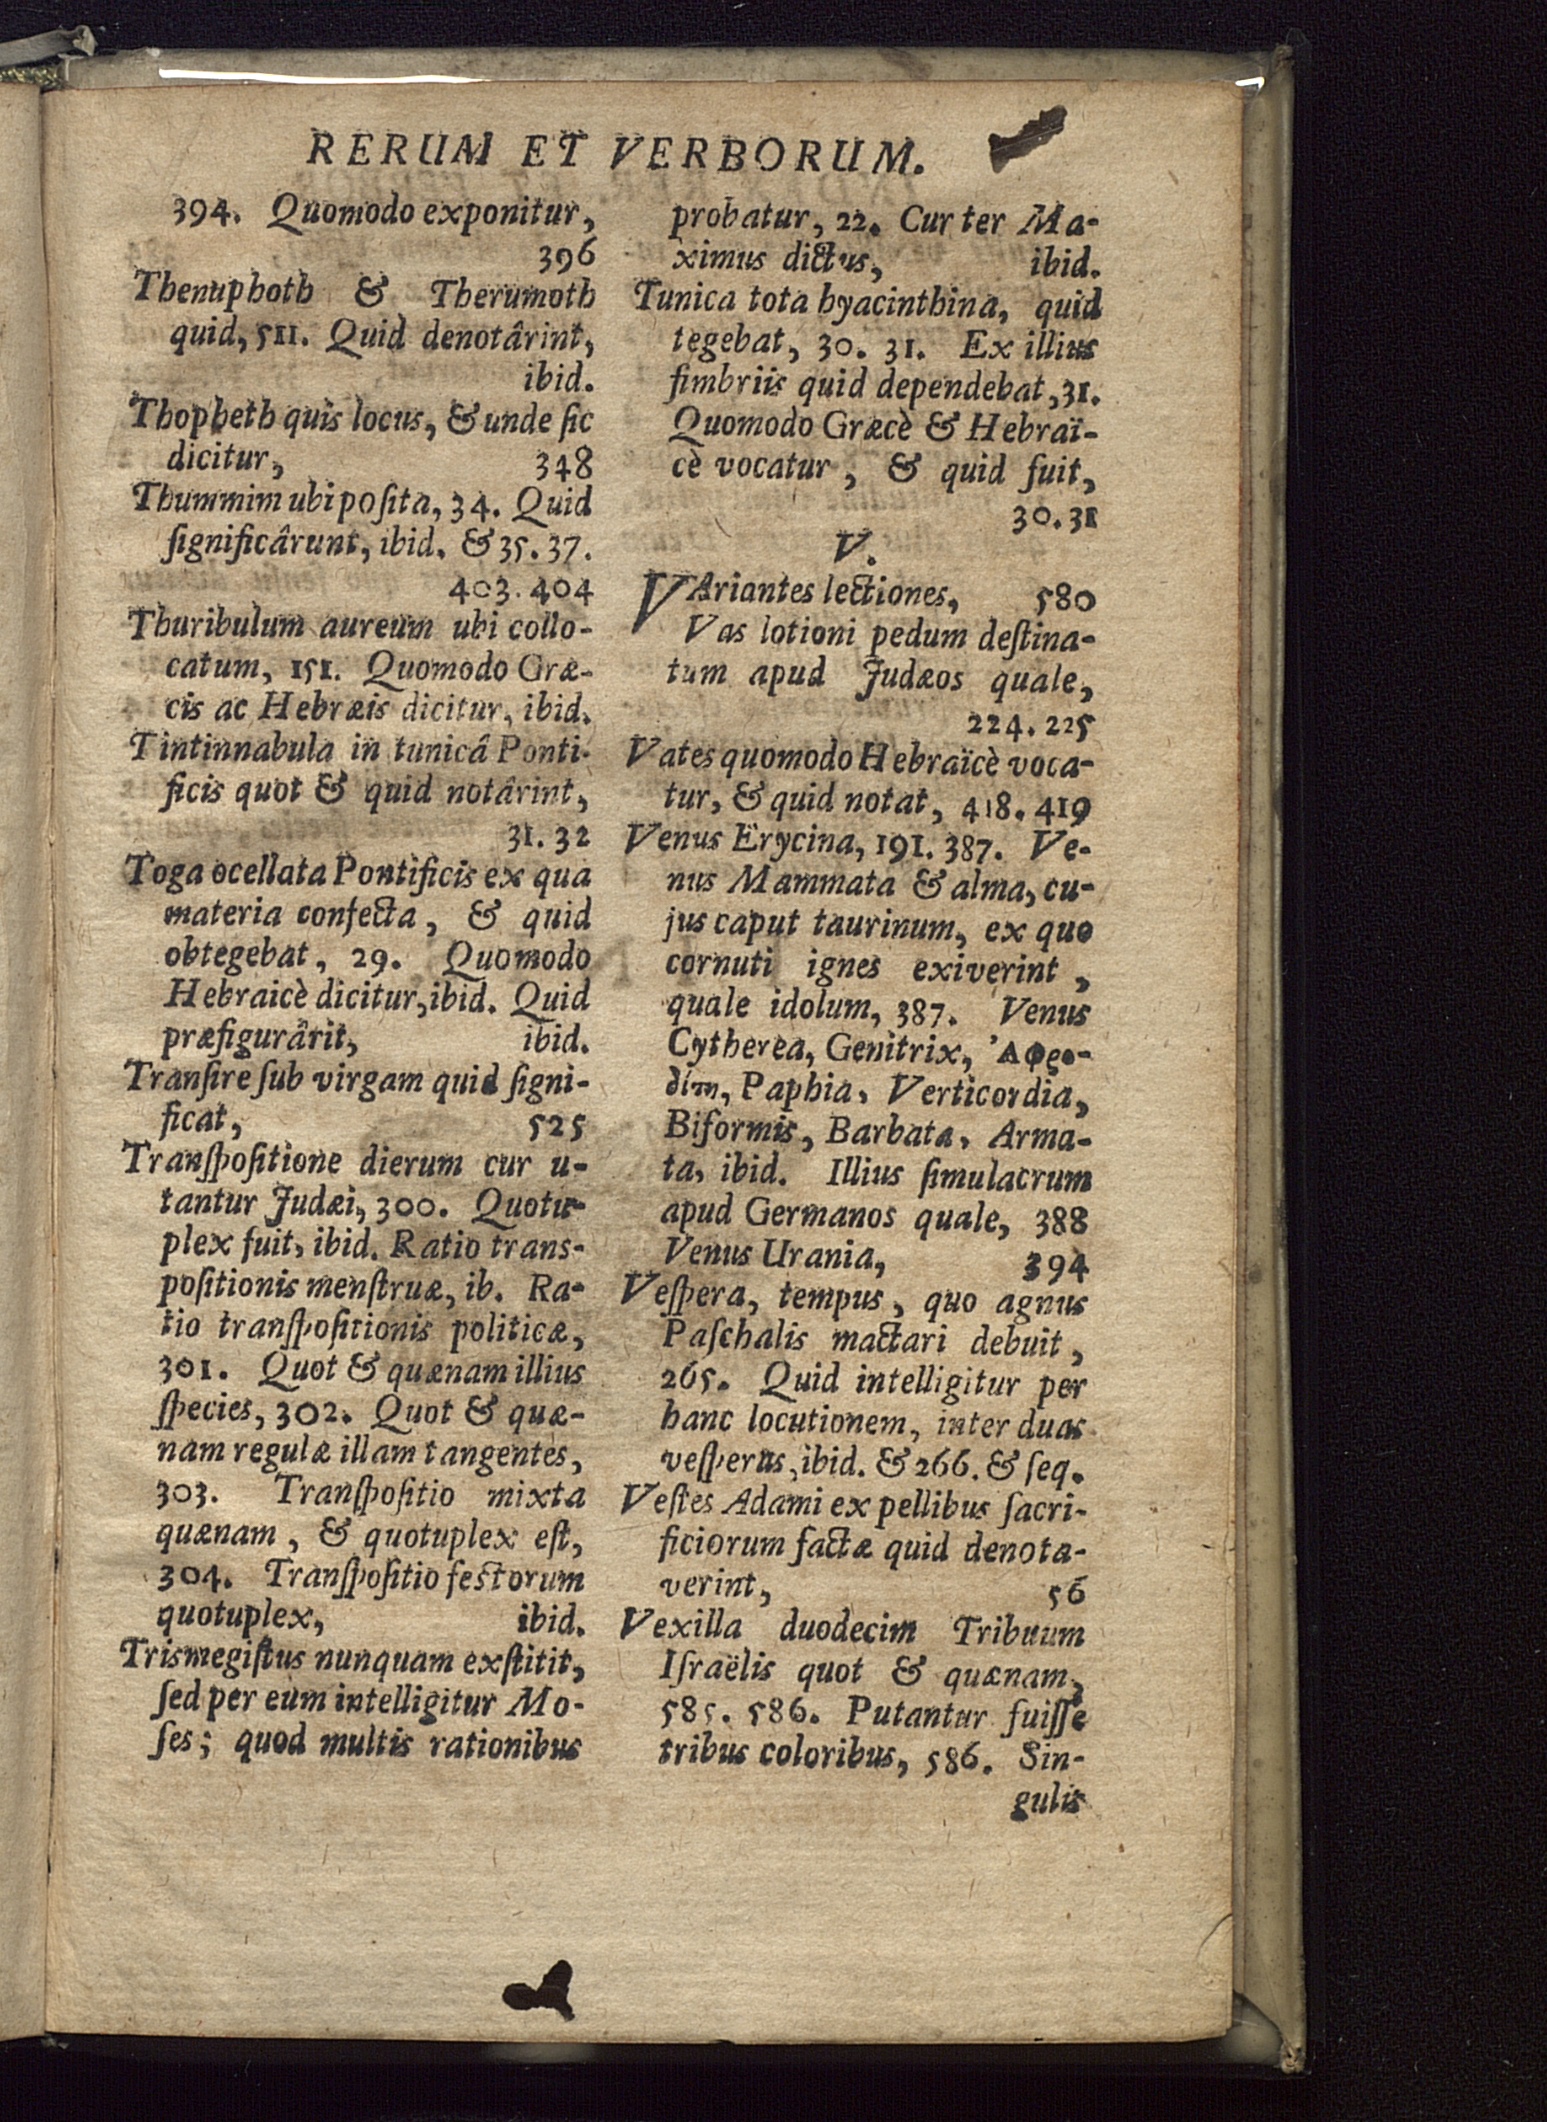 RERUM ET VERBORUM.
394. Quomodo exponitur,
396
Thenuphoth & Therumoth
quid, 511. Quid denotârint,
ibid.
Thopheth quis locus, & unde ſic
dicitur, 348
Thummim ubi poſita, 34. Quid
ſignificârunt, ibid. & 35. 37.
403. 404
Thuribulum aureum ubi collo-
catum, 151. Quomodo Græ-
cis ac Hebræis dicitur, ibid.
Tintinnabula in tunicâ Ponti-
ficis quot & quid notârint,
31. 32
Toga ocellata Pontificis ex qua
materia confecta, & quid
obtegebat, 29. Quomodo
Hebraicè dicitur, ibid. Quid
præfigurârit, ibid.
Tranſire ſub virgam quid ſigni-
ficat, 525
Tranſpoſitione dierum cur u-
tantur Judæi, 300. Quotu-
plex fuit, ibid. Ratio trans-
poſitionis menſtruæ, ib. Ra-
tio tranſpoſitionis politicæ,
301. Quot & quænam illius
ſpecies, 302. Quot & quæ-
nam regulæ illam tangentes,
303. Tranſpoſitio mixta
quænam, & quotuplex eſt,
304. Tranſpoſitio feſtorum
quotuplex, ibid.
Trismegiſtus nunquam exſtitit,
ſed per eum intelligitur Mo-
ſes; quod multis rationibus
probatur, 22. Cur ter Ma-
ximus dictus, ibid.
Tunica tota hyacinthina, quid
tegebat, 30. 31. Ex illius
fimbriis quid dependebat, 31.
Quomodo Græcè & Hebraï-
cè vocatur, & quid fuit,
30. 31
V.
VAriantes lectiones, 580
Vas lotioni pedum deſtina-
tum apud Judæos quale,
224. 225
Vates quomodo Hebraïcè voca-
tur, & quid notat, 418. 419
Venus Erycina, 191. 387. Ve-
nus Mammata & alma, cu-
jus caput taurinum, ex quo
cornuti ignes exiverint,
quale idolum, 387. Venus
Cytherea, Genitrix, Ἀφρο-
δίτη, Paphia, Verticordia,
Biformis, Barbata, Arma-
ta, ibid. Illius ſimulacrum
apud Germanos quale, 388
Venus Urania, 394
Veſpera, tempus, quo agnus
Paſchalis mactari debuit,
265. Quid intelligitur per
hanc locutionem, inter duas
veſperas, ibid. & 266. & ſeq.
Veſtes Adami ex pellibus ſacri-
ficiorum factæ quid denota-
verint, 56
Vexilla duodecim Tribuum
Iſraëlis quot & quænam,
585. 586. Putantur fuiſſe
tribus coloribus, 586. Sin-
gulis